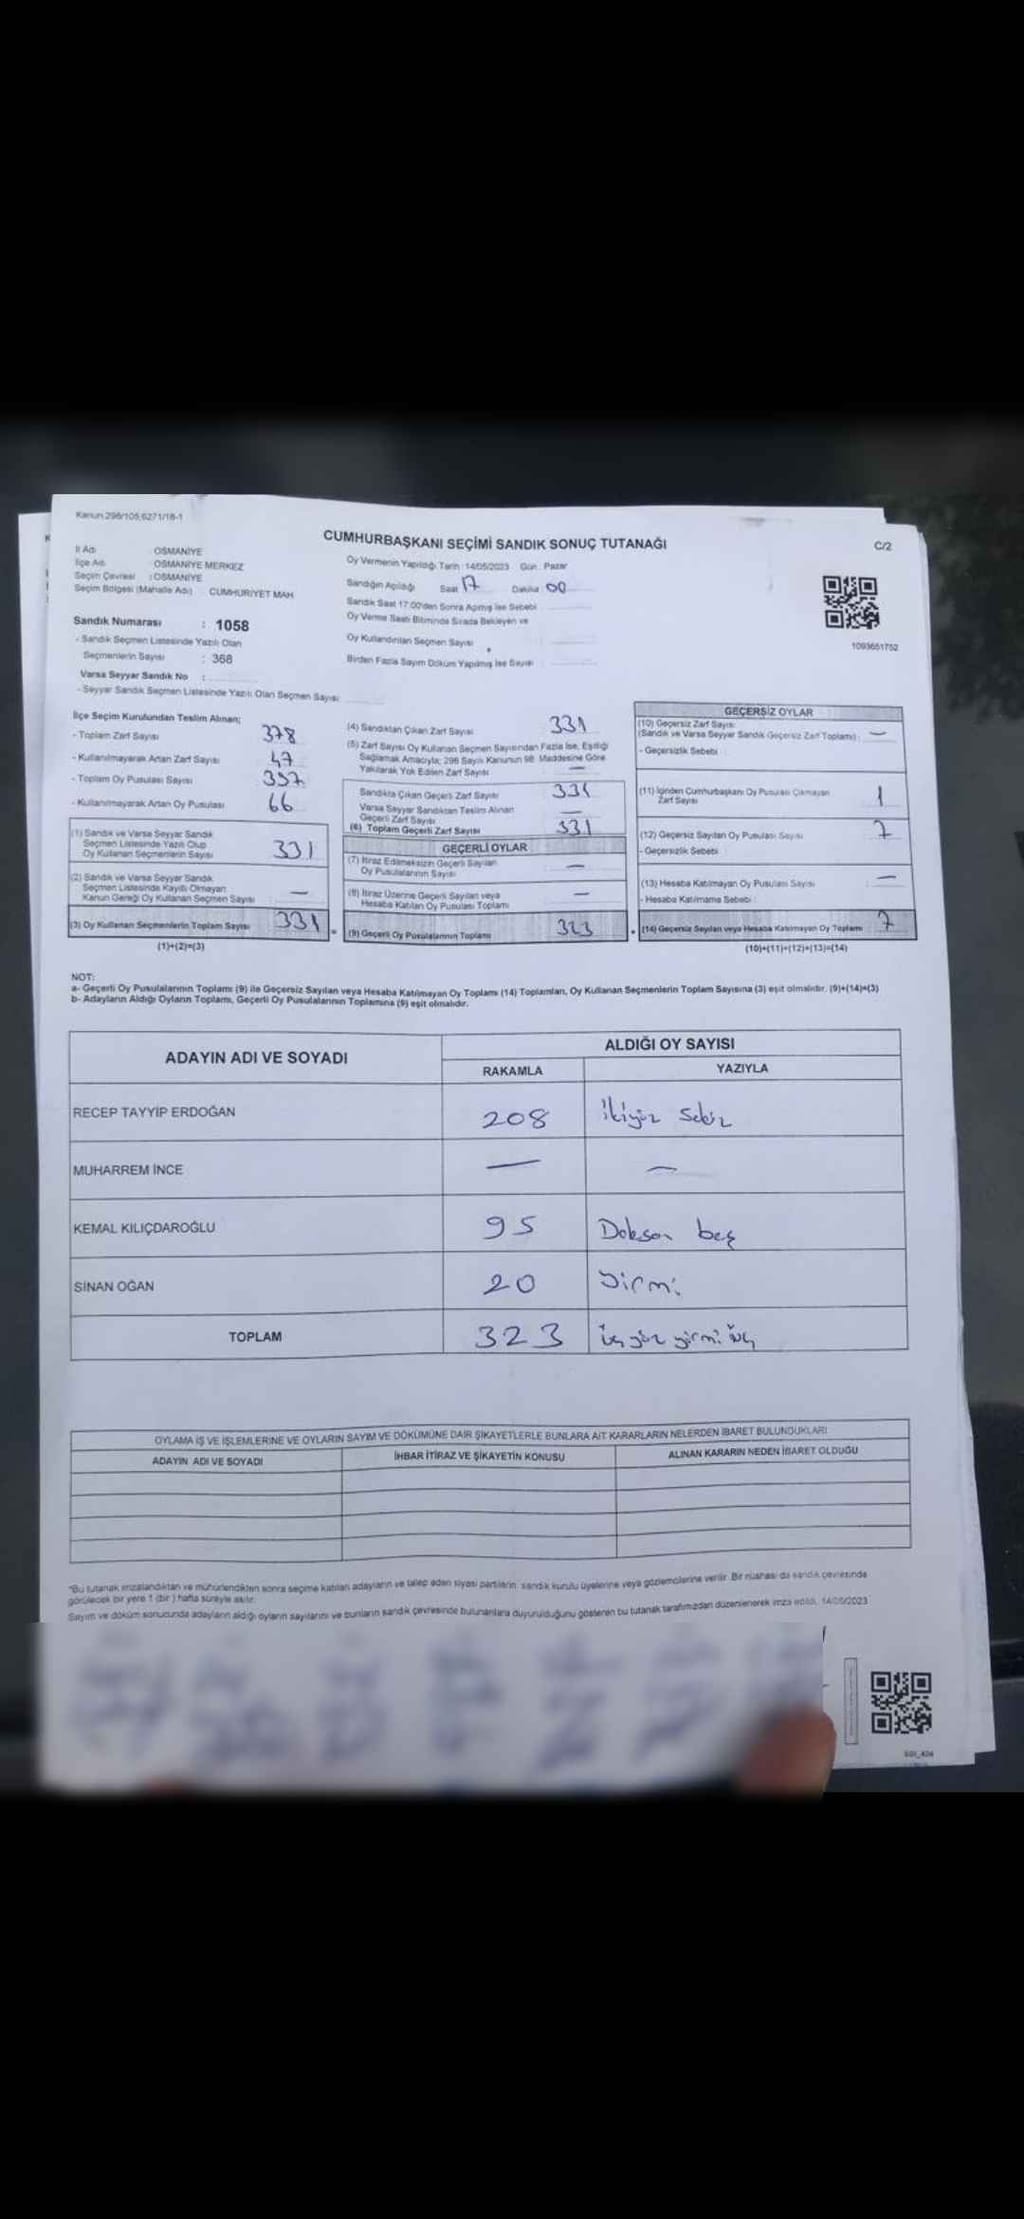 Kanun 298/105,6271/18-1
CUMHURBAŞKANI SEÇİMİ SANDIK SONUÇ TUTANAĞI
C/2
İl Adı OSMANİYE
İlçe Adı OSMANİYE MERKEZ
Seçim Çevresi : OSMANİYE
Seçim Bölgesi (Mahalle Adı) CUMHURİYET MAH
Sandık Numarası : 1058
- Sandık Seçmen Listesinde Yazılı Olan
Seçmenlerin Sayısı : 368
Varsa Seyyar Sandık No :
- Seyyar Sandık Seçmen Listesinde Yazılı Olan Seçmen Sayısı
Oy Vermenin Yapıldığı Tarih : 14/05/2023 Gün : Pazar
Sandığın Açıldığı Saat 17 Dakika 00
Sandık Saat 17:00'den Sonra Açılmış İse Sebebi
Oy Verme Saati Bitiminde Sırada Bekleyen ve
Oy Kullandırılan Seçmen Sayısı
Birden Fazla Sayım Döküm Yapılmış İse Sayısı
1093651752
İlçe Seçim Kurulundan Teslim Alınan;
- Toplam Zarf Sayısı 378
- Kullanılmayarak Artan Zarf Sayısı 47
- Toplam Oy Pusulası Sayısı 397
- Kullanılmayarak Artan Oy Pusulası 66
(1) Sandık ve Varsa Seyyar Sandık
Seçmen Listesinde Yazılı Olup
Oy Kullanan Seçmenlerin Sayısı 331
(2) Sandık ve Varsa Seyyar Sandık
Seçmen Listesinde Kayıtlı Olmayan
Kanun Gereği Oy Kullanan Seçmen Sayısı —
(3) Oy Kullanan Seçmenlerin Toplam Sayısı 331
(1)+(2)=(3)
(4) Sandıktan Çıkan Zarf Sayısı 331
(5) Zarf Sayısı Oy Kullanan Seçmen Sayısından Fazla İse, Eşitliği
Sağlamak Amacıyla; 298 Sayılı Kanunun 98. Maddesine Göre
Yakılarak Yok Edilen Zarf Sayısı —
Sandıkta Çıkan Geçerli Zarf Sayısı 331
Varsa Seyyar Sandıktan Teslim Alınan
Geçerli Zarf Sayısı —
(6) Toplam Geçerli Zarf Sayısı 331
GEÇERLİ OYLAR
(7) İtiraz Edilmeksizin Geçerli Sayılan
Oy Pusulalarının Sayısı —
(8) İtiraz Üzerine Geçerli Sayılan veya
Hesaba Katılan Oy Pusulası Toplamı —
(9) Geçerli Oy Pusulalarının Toplamı 323
GEÇERSİZ OYLAR
(10) Geçersiz Zarf Sayısı
(Sandık ve Varsa Seyyar Sandık Geçersiz Zarf Toplamı) —
- Geçersizlik Sebebi
(11) İçinden Cumhurbaşkanı Oy Pusulası Çıkmayan
Zarf Sayısı 1
(12) Geçersiz Sayılan Oy Pusulası Sayısı 7
- Geçersizlik Sebebi
(13) Hesaba Katılmayan Oy Pusulası Sayısı —
- Hesaba Katılmama Sebebi
(14) Geçersiz Sayılan veya Hesaba Katılmayan Oy Toplamı 7
(10)+(11)+(12)+(13)=(14)
NOT:
a- Geçerli Oy Pusulalarının Toplamı (9) ile Geçersiz Sayılan veya Hesaba Katılmayan Oy Toplamı (14) Toplamları, Oy Kullanan Seçmenlerin Toplam Sayısına (3) eşit olmalıdır. (9)+(14)=(3)
b- Adayların Aldığı Oyların Toplamı, Geçerli Oy Pusulalarının Toplamına (9) eşit olmalıdır.
ADAYIN ADI VE SOYADI ALDIĞI OY SAYISI
RAKAMLA YAZIYLA
RECEP TAYYİP ERDOĞAN 208 İkiyüz sekiz
MUHARREM İNCE — —
KEMAL KILIÇDAROĞLU 95 Doksan beş
SİNAN OĞAN 20 Yirmi
TOPLAM 323 üç yüz yirmi üç
OYLAMA İŞ VE İŞLEMLERİNE VE OYLARIN SAYIM VE DÖKÜMÜNE DAİR ŞİKAYETLERLE BUNLARA AİT KARARLARIN NELERDEN İBARET BULUNDUKLARI
ADAYIN ADI VE SOYADI İHBAR İTİRAZ VE ŞİKAYETİN KONUSU ALINAN KARARIN NEDEN İBARET OLDUĞU
*Bu tutanak imzalandıktan ve mühürlendikten sonra seçime katılan adayların ve talep eden siyasi partilerin sandık kurulu üyelerine veya gözlemcilerine verilir. Bir nüshası da sandık çevresinde
görülecek bir yere 1 (bir) hafta süreyle asılır.
Sayım ve döküm sonucunda adayların aldığı oyların sayılarını ve bunların sandık çevresinde bulunanlara duyurulduğunu gösteren bu tutanak tarafımızdan düzenlenerek imza edildi. 14/05/2023